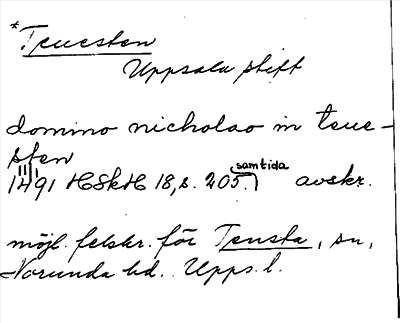 *Teuesten
Uppsala stift
domino nicholao in teue-
sten
samtida
1491 HSkH 18, s. 205. avskr.
möjl. felskr. för Tensta, sn,
Norunda hd. Upps. l.